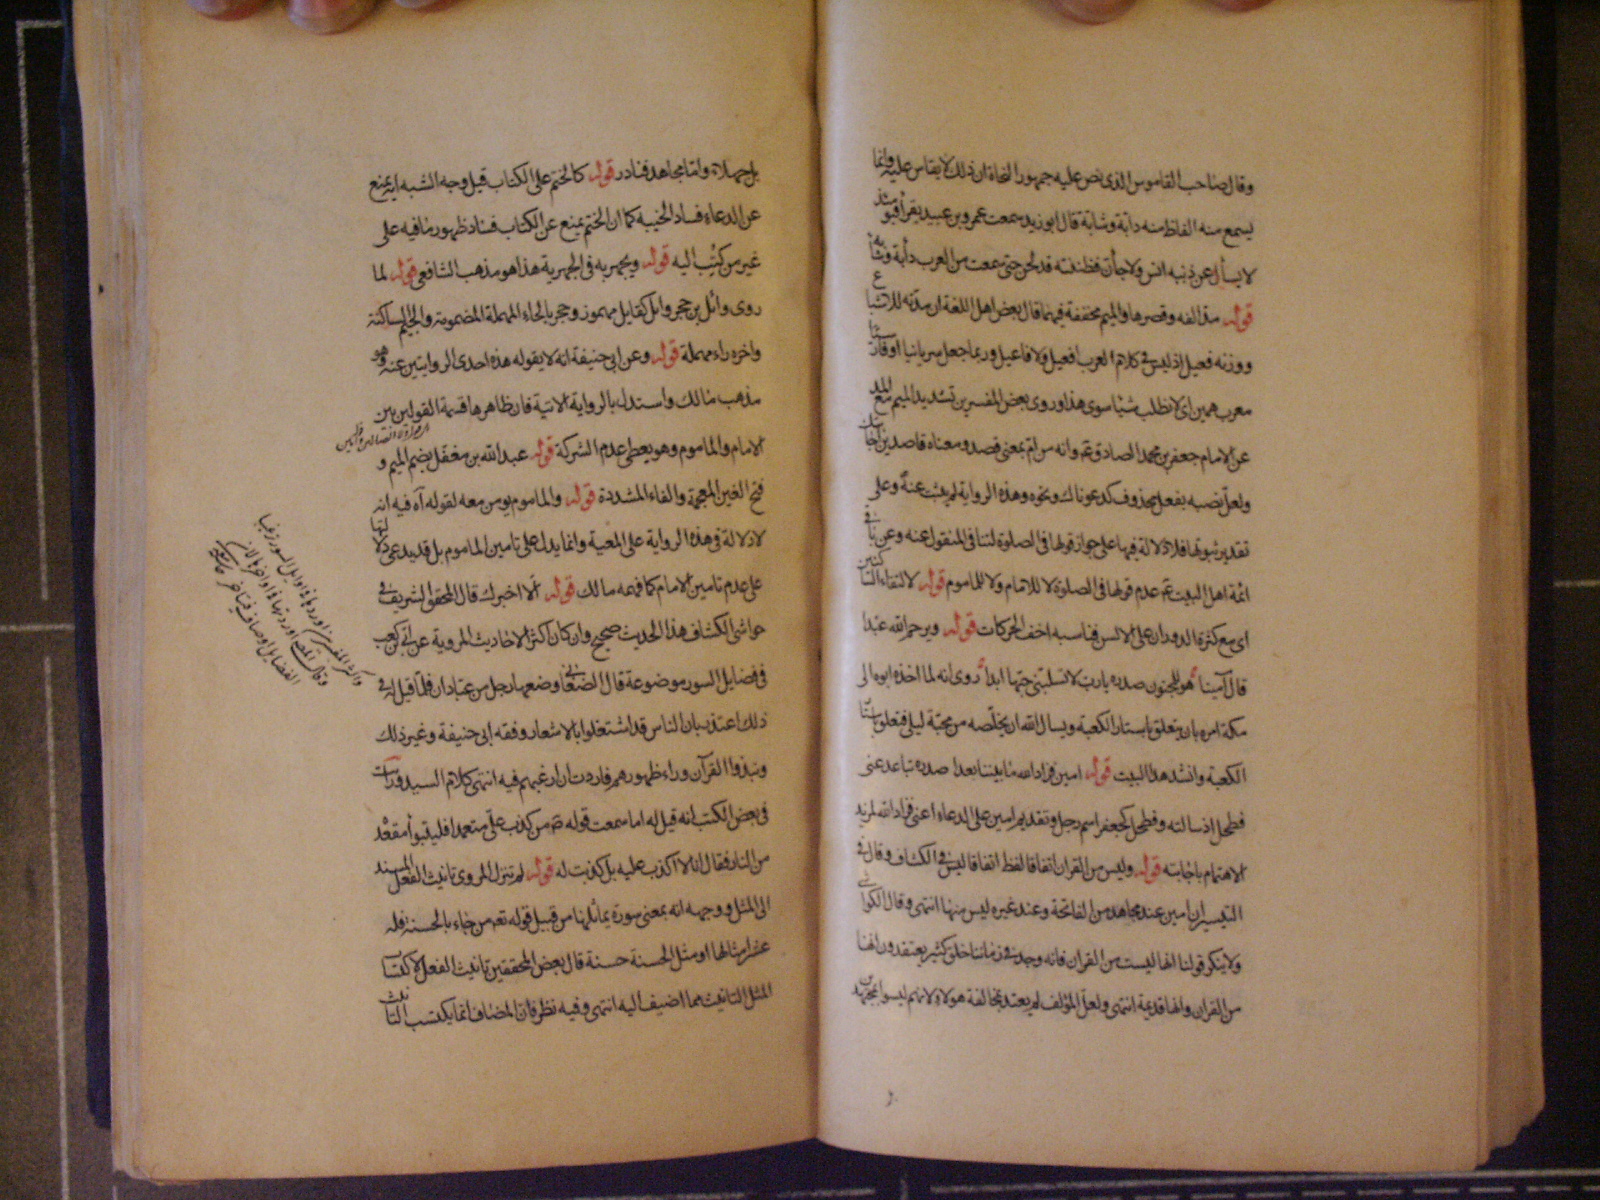 وقال صاحب القاموس الذى نص عليه جمهور النحاة ان ذلك لا يقاس عليه وانما
يسمع منه الفاظ منه دابة وشابة قال ابو زيد سمعت عمرو بن عبيد يقرأ فيومئذ
لا يسأل عن ذنبه انس ولا جأن فظننته قد لحن حتى سمعت من العرب دأبة وشأبه
قوله مد الفه وقصرها والميم مخففة فيهما قال بعض اهل اللغة ان مدته للاشباع
ووزنه فعيل اذ ليس فى كلام العرب افعيل ولا فاعيل وربما جعل سريانيا او فارسيا
معرب همين اى لا نطلب شيئا سوى هذا وروى بعض المفسرين تشديد الميم مع المد
عن الامام جعفر بن محمد الصادق عم وانه من ام بمعنى قصد ومعناه قاصدين اجابتك
ولعل نصبه بفعل محذوف كدعوناك ونحوه وهذه الرواية لم يثبت عنه وعلى
تقدير ثبوتها فلا دلالة فيها على جواز قولها فى الصلوة لنا فى المنقول عنه وعن باقى
ائمة اهل البيت عم عدم قولها فى الصلوة لا للامام ولا للماموم قوله لالتقاء الساكنين
اى مع كثرة الدوران على الالسن فناسبه اخف الحركات قوله ويرحم الله عبدا
قال آمينا هو للمجنون صدره يا رب لا تسلبنى حبها ابدا روى انه لما اخذه ابوه الى
مكة امره بان يتعلق باستار الكعبة ويسال الله ان يخلصه من محبة ليلى فتعلق باستار
الكعبة وانشد هذا البيت قوله امين فزاد الله ما بيننا بعدا صدره تباعد عنى
فطحل اذ سالته وفطحل كجعفر اسم رجل وتقديم امين على الدعاء اعنى فزاد الله لمزيد
الاهتمام باجابته قوله وليس من القران اتفاقا لفظ اتفاقا ليس فى الكشاف وقال فى
التيسير ان امين عند مجاهد من الفاتحة وعند غيره ليس منها انتهى وقال الكواشى
ولا ينكر قولنا انها ليست من القران فانه وجد فى زماننا خلق كثير يعتقدون انها
من القران وانها قديمة انتهى ولعل المؤلف لم يعتد بمخالفة هؤلاء لانهم ليسوا بمجتهدين
بل جهلاء واما مجاهد فنادر قوله كالختم على الكتاب قيل وجه الشبه انه يمنع
عن الدعاء فساد الخيبة كما ان الختم يمنع عن الكتاب فساد ظهور ما فيه على
غير من كتب اليه قوله ويجهر به فى الجهرية هذا هو مذهب الشافعى قوله لما
روى وائل بن حجر وائل كقايل مهموز وحجر بالحاء المهملة المضمومة والجيم الساكنة
واخره راء مهملة قوله وعن ابى حنيفة انه لا يقوله هذه احدى الروايتين عنه وهو
مذهب مالك واستدل بالرواية الاتية فان ظاهرها قسمة القولين بين
الامام والماموم وهو يعطى عدم الشركة قوله عبد الله بن مغفل بضم الميم و
فتح الغين المعجمة والفاء المشددة قوله والماموم يومن معه لقوله آه فيه انه
لا دلالة فى هذه الرواية على المعية وانما يدل على تامين الماموم بل قد يدعى دلالتها
على عدم تامين الامام كما فهمه مالك قوله الا اخبرك قال المحقق الشريف فى
حواشى الكشاف هذا الحديث صحيح وان كان اكثر الاحاديث المروية عن ابى كعب
فى فضايل السور موضوعة قال الصغانى وضعها رجل من عبادان فلما قيل له فى
ذلك اعتذر بان الناس قد اشتغلوا بالاشعار وفقه ابى حنيفة وغير ذلك
ونبذوا القرآن وراء ظهورهم فاردت ان ارغبهم فيه انتهى كلام السيد ورايت
فى بعض الكتب انه قيل له اما سمعت قوله ص من كذب على متعمدا فليتبوأ مقعده
من النار فقال انا لا اكذب عليه بل كذبت له قوله لم تنزل المروى تانيث الفعل المسند
الى المثل ووجهه انه بمعنى سورة يماثلها من قبيل قوله تعه من جاء بالحسنة فله
عشر امثالها او مثل الحسنة حسنة قال بعض المحققين تانيث الفعل لاكتساب
المثل التانيث مما اضيف اليه انتهى وفيه نظر فان المضاف انما يكتسب التانيث